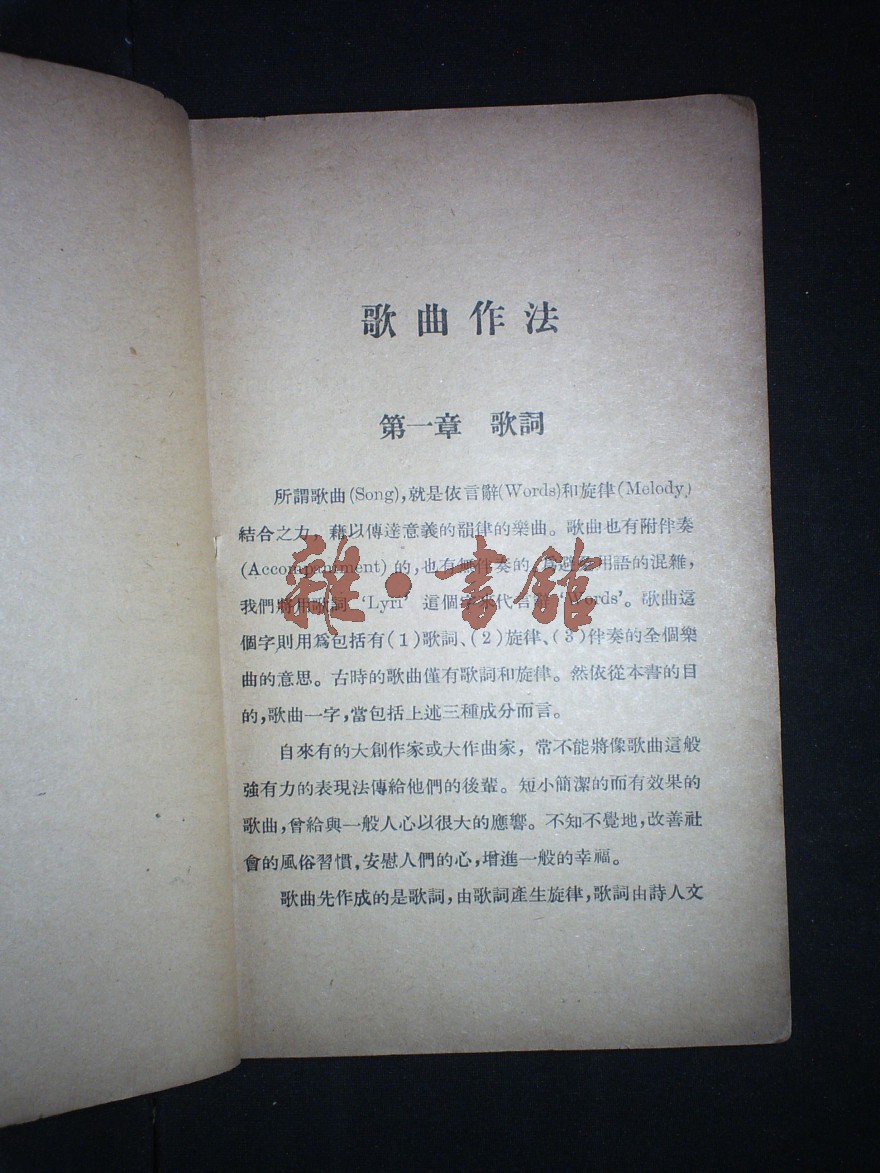 歌曲作法
第一章 歌詞
所謂歌曲(Song),就是依言辭(Words)和旋律(Melody)
結合之力,藉以傳達意義的韻律的樂曲。歌曲也有附伴奏
(Accompaniment)的,也有無伴奏的,爲避免用語的混雜,
我們將用歌詞 ‘Lyri’ 這個字來代言辭 ‘Words’。歌曲這
個字則用爲包括有(1)歌詞、(2)旋律、(3)伴奏的全個樂
曲的意思。古時的歌曲僅有歌詞和旋律。然依從本書的目
的,歌曲一字,當包括上述三種成分而言。
自來有的大創作家或大作曲家,常不能將像歌曲這般
強有力的表現法傳給他們的後輩。短小簡潔的而有效果的
歌曲,曾給與一般人心以很大的應響。不知不覺地,改善社
會的風俗習慣,安慰人們的心,增進一般的幸福。
歌曲先作成的是歌詞,由歌詞產生旋律,歌詞由詩人文
雜·書館